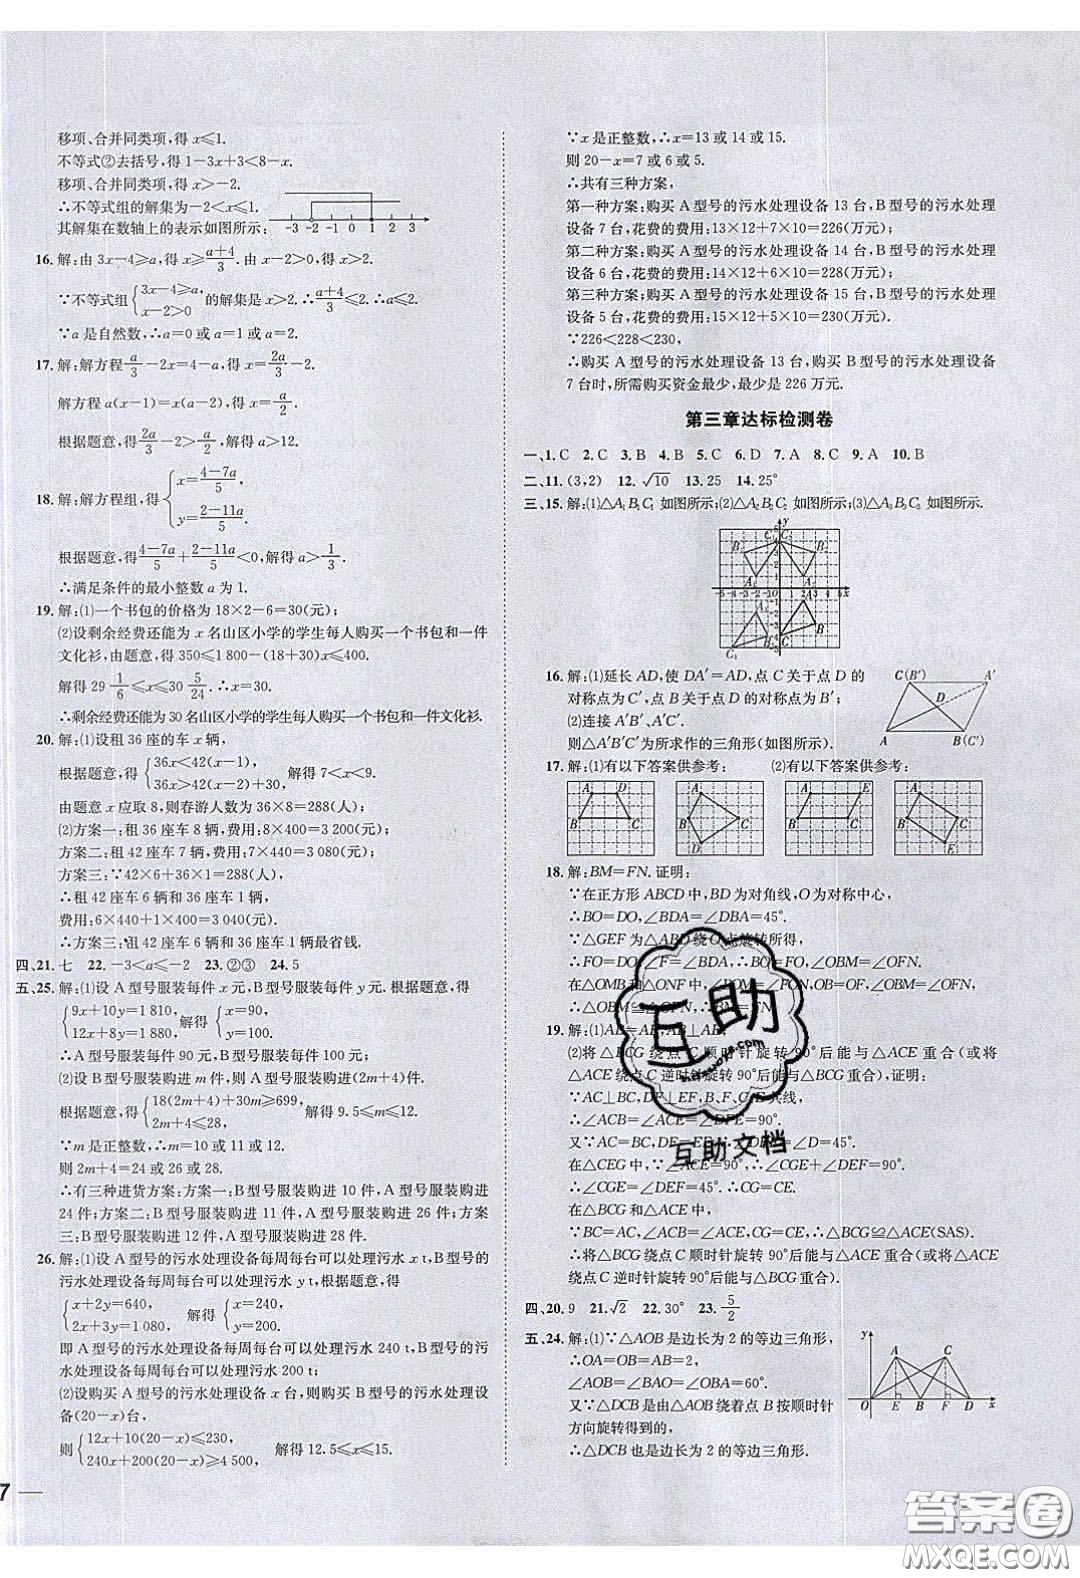 移项、合并同类项,得 x≤1.
不等式②去括号,得 1-3x+3<8-x.
移项、合并同类项,得 x>-2.
∴不等式组的解集为-2<x≤1.
其解集在数轴上的表示如图所示:
-3 -2 -1 0 1 2 3
16. 解:由 3x-4≥a,得 x≥(a+4)/3. 由 x-2>0,得 x>2.
∵不等式组{3x-4≥a, x-2>0 的解集为 x>2. ∴(a+4)/3≤2. ∴a≤2.
∵a 是自然数,∴a=0 或 a=1 或 a=2.
17. 解:解方程 a/3-2x=4-a,得 x=2a/3-2.
解方程 a(x-1)=x(a-2),得 x=a/2.
根据题意,得 2a/3-2>a/2,解得 a>12.
18. 解:解方程组,得{x=(4-7a)/5, y=(2-11a)/5.
根据题意,得 (4-7a)/5+(2-11a)/5<0,解得 a>1/3.
∴满足条件的最小整数 a 为 1.
19. 解:(1)一个书包的价格为 18×2-6=30(元);
(2)设剩余经费还能为 x 名山区小学的学生每人购买一个书包和一件
文化衫,由题意,得 350≤1 800-(18+30)x≤400.
解得 29 1/6≤x≤30 5/24. ∴x=30.
∴剩余经费还能为 30 名山区小学的学生每人购买一个书包和一件文化衫.
20. 解:(1)设租 36 座的车 x 辆,
根据题意,得{36x<42(x-1), 36x>42(x-2)+30, 解得 7<x<9.
由题意 x 应取 8,则春游人数为 36×8=288(人);
(2)方案一:租 36 座车 8 辆,费用:8×400=3 200(元);
方案二:租 42 座车 7 辆,费用:7×440=3 080(元);
方案三:∵42×6+36×1=288(人),
∴租 42 座车 6 辆和 36 座车 1 辆,
费用:6×440+1×400=3 040(元).
∴方案三:租 42 座车 6 辆和 36 座车 1 辆最省钱.
四、21. 七 22. -3<a≤-2 23. ②③ 24. 5
五、25. 解:(1)设 A 型号服装每件 x 元,B 型号服装每件 y 元. 根据题意,得
{9x+10y=1 810, 12x+8y=1 880, 解得{x=90, y=100.
∴A 型号服装每件 90 元,B 型号服装每件 100 元;
(2)设 B 型号服装购进 m 件,则 A 型号服装购进(2m+4)件.
根据题意,得{18(2m+4)+30m≥699, 2m+4≤28, 解得 9.5≤m≤12.
∵m 是正整数,∴m=10 或 11 或 12.
则 2m+4=24 或 26 或 28.
∴有三种进货方案:方案一:B 型号服装购进 10 件,A 型号服装购进
24 件;方案二:B 型号服装购进 11 件,A 型号服装购进 26 件;方案
三:B 型号服装购进 12 件,A 型号服装购进 28 件.
26. 解:(1)设 A 型号的污水处理设备每周每台可以处理污水 x t,B 型号的
污水处理设备每周每台可以处理污水 y t,根据题意,得
{x+2y=640, 2x+3y=1 080, 解得{x=240, y=200,
即 A 型号的污水处理设备每周每台可以处理污水 240 t,B 型号的污
水处理设备每周每台可以处理污水 200 t;
(2)设购买 A 型号的污水处理设备 x 台,则购买 B 型号的污水处理设
备(20-x)台,
则{12x+10(20-x)≤230, 240x+200(20-x)≥4 500, 解得 12.5≤x≤15.
7
∵x 是正整数,∴x=13 或 14 或 15.
则 20-x=7 或 6 或 5.
∴共有三种方案,
第一种方案:购买 A 型号的污水处理设备 13 台,B 型号的污水处理
设备 7 台,花费的费用:13×12+7×10=226(万元);
第二种方案:购买 A 型号的污水处理设备 14 台,B 型号的污水处理
设备 6 台,花费的费用:14×12+6×10=228(万元);
第三种方案:购买 A 型号的污水处理设备 15 台,B 型号的污水处理
设备 5 台,花费的费用:15×12+5×10=230(万元).
∵226<228<230,
∴购买 A 型号的污水处理设备 13 台,购买 B 型号的污水处理设备
7 台时,所需购买资金最少,最少是 226 万元.
第三章达标检测卷
一、1. C 2. C 3. B 4. B 5. C 6. D 7. A 8. C 9. A 10. B
二、11. (3,2) 12. √10 13. 25 14. 25°
三、15. 解:(1)△A₁B₁C₁ 如图所示;(2)△A₂B₂C₂ 如图所示;(3)△A₃B₃C₃ 如图所示.
16. 解:(1)延长 AD,使 DA′=AD,点 C 关于点 D 的
对称点为 C′,点 B 关于点 D 的对称点为 B′;
(2)连接 A′B′、A′C′.
则△A′B′C′为所求作的三角形(如图所示).
C(B′) A′ D A B(C′)
17. 解:(1)有以下答案供参考: (2)有以下答案供参考:
A D B C A B C D A E B C A B C E
18. 解:BM=FN. 证明:
∵在正方形 ABCD 中,BD 为对角线,O 为对称中心,
∴BO=DO,∠BDA=∠DBA=45°.
∵△GEF 为△ABD 绕 O 点旋转所得,
∴FO=DO,∠F=∠BDA.
在△OBM 和△ONF 中,∠BOM=∠FON,
∴△OBM≌△OFN. ∴BM=FN.
19. 解:(1)AB=AE,AB⊥AE;
(2)将△BCG 绕点 C 顺时针旋转 90°后能与△ACE 重合(或将
△ACE 绕点 C 逆时针旋转 90°后能与△BCG 重合),证明:
∵AC⊥BC,DF⊥EF,B、F、C、E 共线,
∴∠ACB=∠ACE=∠DFE=90°.
又∵AC=BC,DF=EF,∴∠DEF=45°.
在△CEG 中,∵∠ACE=90°,∴∠CGE+∠DEF=90°.
∴∠CGE=∠DEF=45°. ∴CG=CE.
在△BCG 和△ACE 中,
∵BC=AC,∠ACB=∠ACE,CG=CE,∴△BCG≌△ACE(SAS).
∴将△BCG 绕点 C 顺时针旋转 90°后能与△ACE 重合(或将△ACE
绕点 C 逆时针旋转 90°后能与△BCG 重合).
四、20. 9 21. √2 22. 30° 23. 5/2
五、24. 解:(1)∵△AOB 是边长为 2 的等边三角形,
∴OA=OB=AB=2,
∠AOB=∠BAO=∠OBA=60°.
又∵△DCB 是由△AOB 绕着点 B 按顺时针
方向旋转得到的,
∴△DCB 也是边长为 2 的等边三角形.
y A C O E B F D x
互助
互助文档
答案圈
MXQE.COM